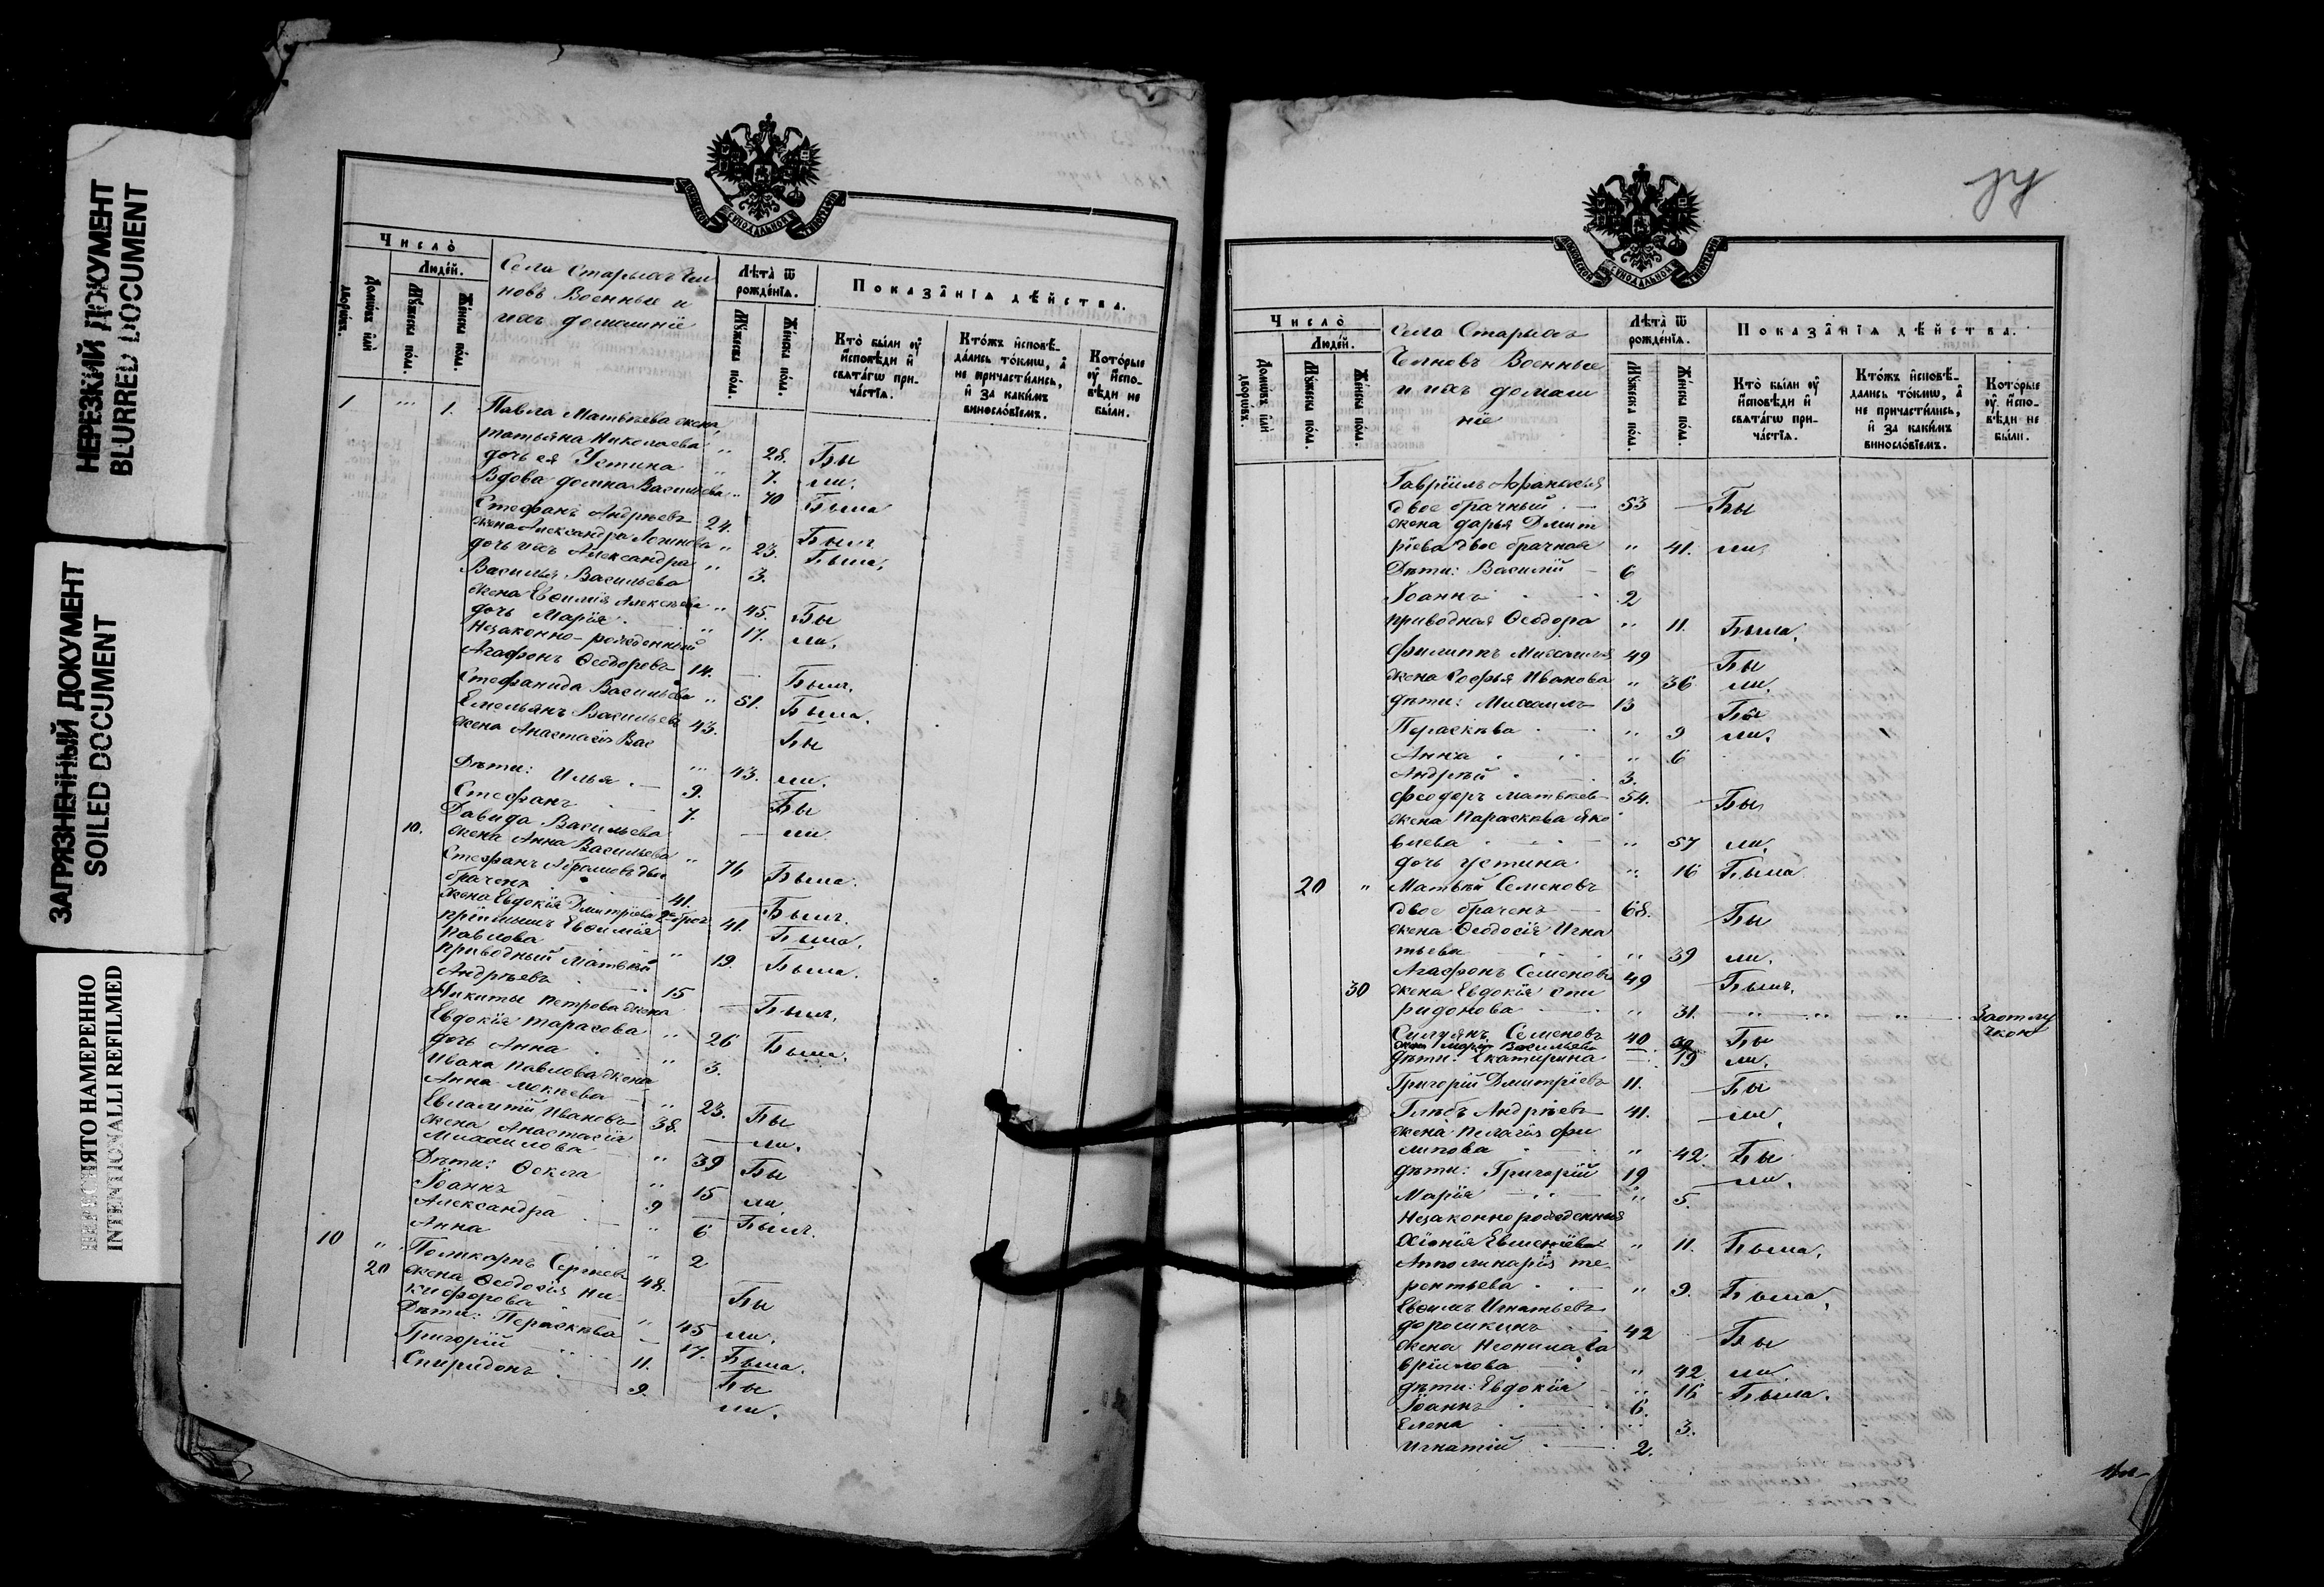 НЕРЕЗКИЙ ДОКУМЕНТ
BLURRED DOCUMENT
ЗАГРЯЗНЕННЫЙ ДОКУМЕНТ
SOILED DOCUMENT
ПЕРЕСНЯТО НАМЕРЕННО
INTENTIONALLI REFILMED
МОСКОВСКОЙ СѴНОДАЛЬНОЙ ТИПОГРАФІИ
Число̀
Домѡ́въ и҆лѝ дворѡ́въ.
Люде́й.
Мꙋ́жеска по́ла.
Же́нска по́ла.
Села Старыхъ Чи
новъ Военные и
ихъ домашніе
Лѣта̀ ѿ рожде́нїѧ.
Мꙋ́жеска по́ла.
Же́нска по́ла.
Показа̑нїѧ дѣ́йства.
Кто̀ бы́ли оу҆ и҆сповѣ́ди и҆ свѧта́гѡ причⷭ҇а́стїѧ.
Кто́жъ и҆сповѣ́дались то́кмѡ, а҆ не причасти́лись, и҆ за каки́мъ винословіемъ.
Кото́рые оу҆ и҆сповѣ́ди не бы́ли.
1 " 1. Павла Матвѣева жена
Татьяна Николаева " 28. Бы
дочь ея Устина " 7. ли.
Вдова Домна Васильева " 70 Была
Стефанъ Андреевъ 24. Былъ
жена Александра Логинова " 23. Была,
дочь ихъ Александра " 3.
Василья Васильева
жена Евѳимія Алексѣева " 45. Бы
дочь Марія " 17. ли.
Незаконно-рожденный
Агафонъ Ѳеодоровъ 14. Былъ.
Стефанида Васильева " 51. Была.
Емельянъ Васильевъ 43. Бы
жена Анастасія Вас
" 43. ли.
Дѣти: Илья 9. Бы
Стефанъ 7. ли
Давида Васильева
10. жена Анна Васильева " 76 Была.
Стефанъ Абрамовъ двое
браченъ 41. Былъ.
жена Евдокія Дмитріева 2ᵐ брач. 41. Была.
пріемышъ Евѳимія
Павлова " 19. Была.
приводный Матвѣй
Андреевъ 15 Былъ.
Никиты Петрова жена
Евдокія Тарасова " 26 Была.
дочь Анна " 3.
Ивана Павлова жена
Анна Мокѣева " 23. Бы
Евлампій Ивановъ 38. ли.
жена Анастасія
Михаилова " 39 Бы
Дѣти: Ѳекла " 15 ли
Іоаннъ 9 Былъ.
Александра " 6
Анна " 2
10 " Поликарпъ Сергеевъ 48. Бы
20 жена Ѳеодосія Ни-
кифорова " 45 ли.
Дѣти: Пераскѣва 17. Была.
Григорій 11. Бы
Спиридонъ 9. ли.
МОСКОВСКОЙ СѴНОДАЛЬНОЙ ТИПОГРАФІИ
Число̀
Домѡ́въ и҆лѝ дворѡ́въ.
Люде́й.
Мꙋ́жеска по́ла.
Же́нска по́ла.
Села Старыхъ
Чиновъ Военные
и ихъ домаш
ніе
Лѣта̀ ѿ рожде́нїѧ.
Мꙋ́жеска по́ла.
Же́нска по́ла.
Показа̑нїѧ дѣ́йства.
Кто̀ бы́ли оу҆ и҆сповѣ́ди и҆ свѧта́гѡ причⷭ҇а́стїѧ.
Кто́жъ и҆сповѣ́дались то́кмѡ, а҆ не причасти́лись, и҆ за каки́мъ винословіемъ.
Кото́рые оу҆ и҆сповѣ́ди не бы́ли.
Гавріилъ Афанасьев
двое брачный 53 Бы
жена Дарья Дмит
ріева двое брачная " 41. ли
Дѣти: Василій 6
Іоаннъ 2
приводная Ѳеодора " 11. Была.
Филиппъ Михаиловъ 49 Бы
жена Софья Иванова " 36 ли.
дѣти: Михаилъ 13 Бы
Пераскѣва " 9 ли.
Анна " 6
Андрей 3.
Феодоръ Матвѣевъ 54. Бы
жена Параскева Яко
влева " 57 ли.
дочь Устина " 16 Была
20 " Матвѣй Семеновъ
двое браченъ 68. Бы
жена Ѳеодосія Игна
тьева " 39 ли.
Агафонъ Семеновъ 49 Былъ.
30 жена Евдокія Спи
ридонова " 31. " " " За отлу
чкою
Силуянъ Семеновъ 40 Бы
жена Марія Васильева 39
дѣти: Екатерина 19 ли.
Григорій Дмитріевъ 11. Бы
Глѣбъ Андреевъ 41. ли.
жена Пелагія Фи
липова " 42. Бы
дѣти: Григорій 19 ли.
Марія " 5.
Незаконнорожденныя
Хіонія Евменіева " 11. Была.
Апполинарія Те-
рентьева " 9. Была.
Евѳимъ Игнатьевъ
Дорошкинъ 42 Бы
жена Неонила Га
вріилова " 42 ли
дѣти: Евдокія " 16 Была.
Іоаннъ 6.
Елена " 3.
Игнатій 2.